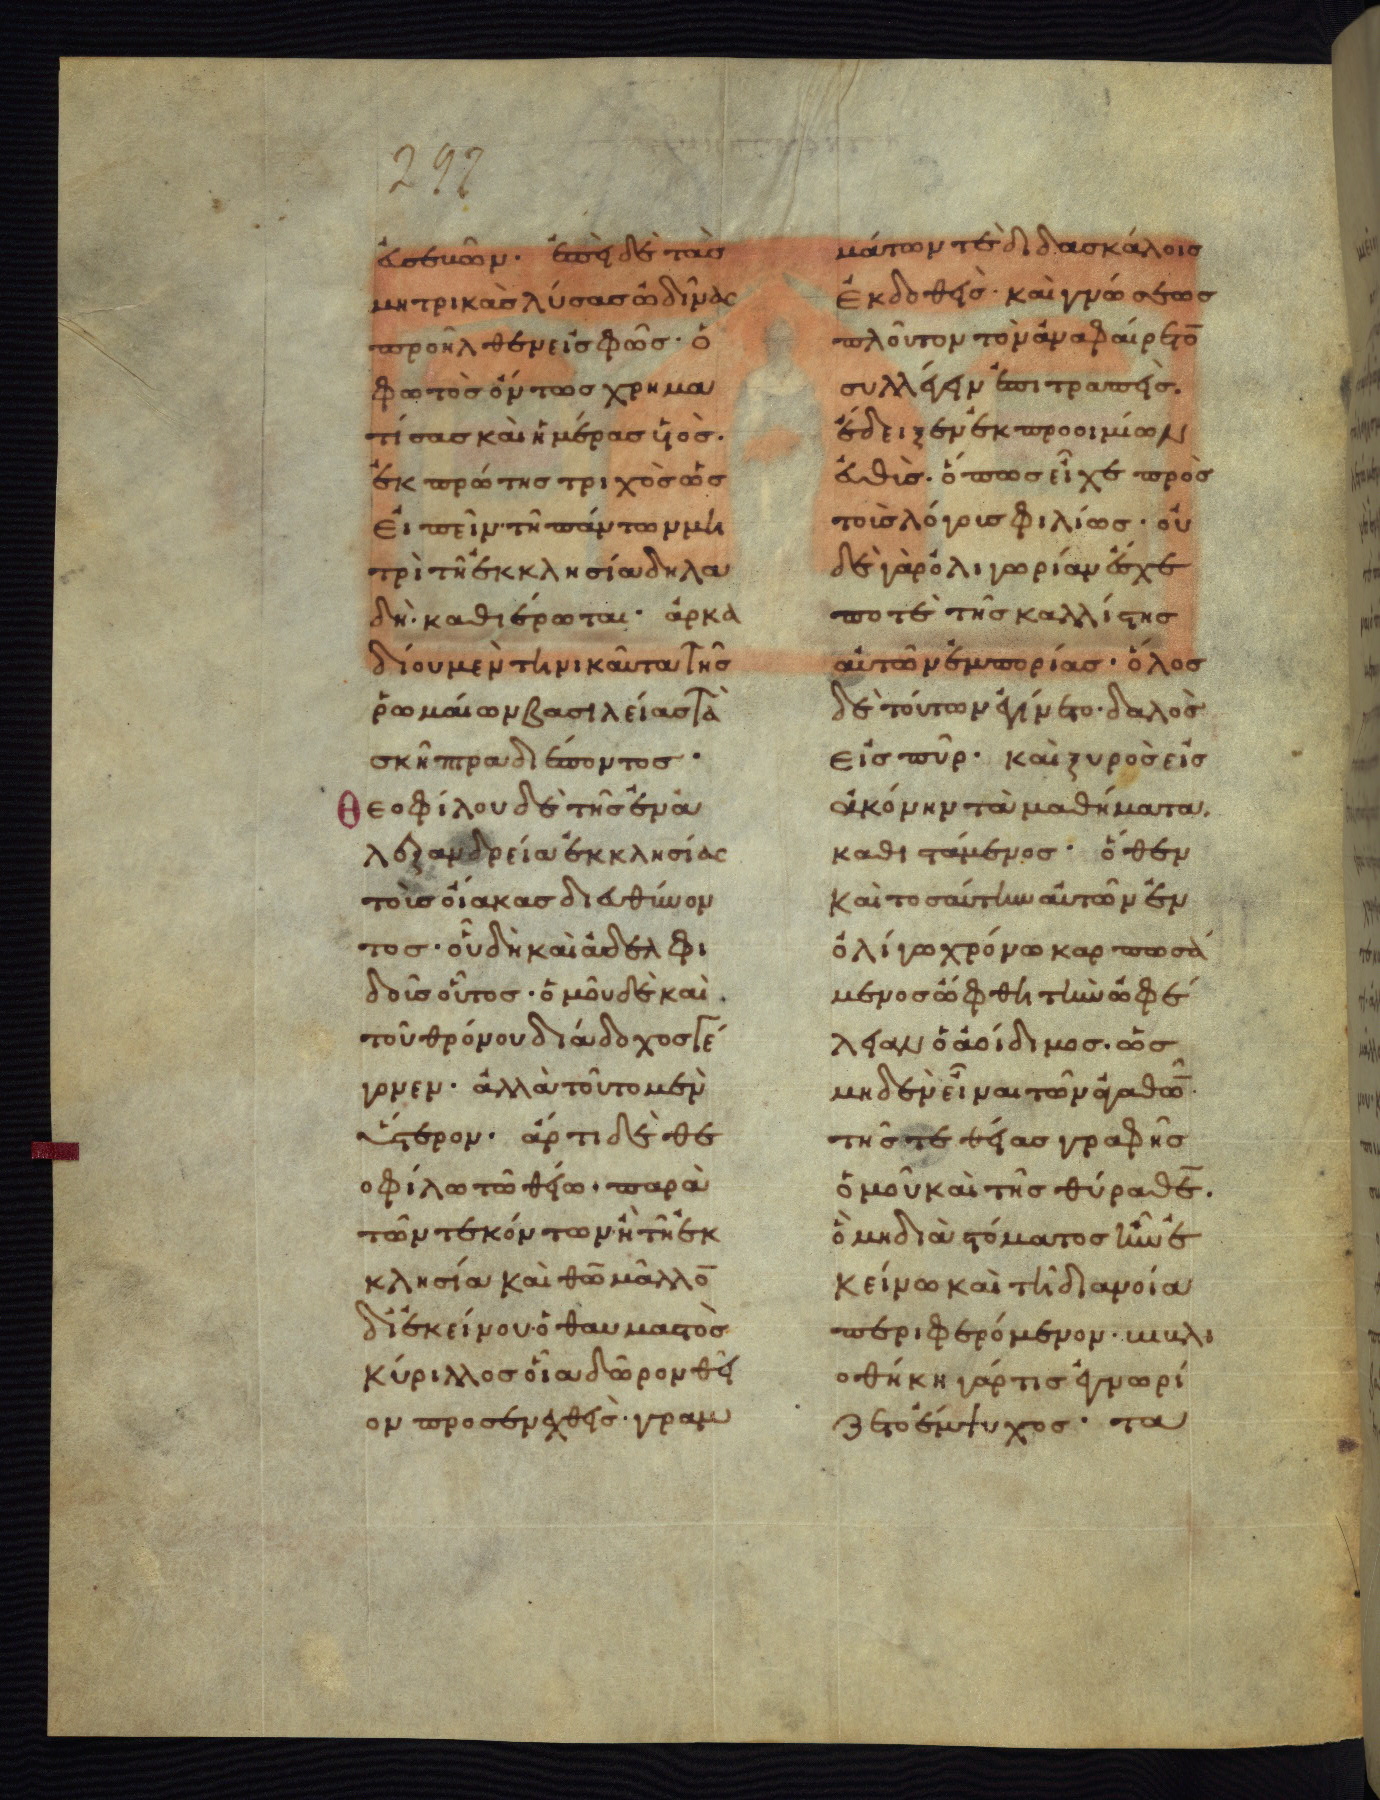 292
εὐσεβῶν. ἐπεὶ δὲ τὰς
μητρικὰς λύσας ὠδῖνας
προῆλθεν εἰς φῶς. ὁ
φωτὸς ὄντως χρημα
τίσας καὶ ἡμέρας υἱὸς.
ἐκ πρώτης τριχὸς ὡς
εἰπεῖν. τῆ πάντων μη
τρὶ τῆ ἐκκλησία δηλα
δὴ. καθιέρωται. ἀρκα
δίου μὲν τηνικαῦτα τῆς
ῥωμαίων βασιλείας τὰ
σκῆπτρα διέποντος.
Θεοφίλου δὲ τῆς ἐν ἀ
λεξανδρεία ἐκκλησίας
τοὺς οἴακας διευθύνον
τος. οὗ δὴ καὶ ἀδελφι
δοῦς οὗτος. ὁμοῦ δὲ καὶ
τοῦ θρόνου διάδοχος γέ
γονεν. ἀλλὰ τοῦτο μὲν
ὕστερον. ἄρτι δὲ θε
οφίλω τῶ θείω. παρὰ
τῶν τεκόντων. ἢ τῆ ἐκ
κλησία καὶ θῶ μᾶλλο̅
δι' ἐκείνου. ὁ θαυμαστὸς
κύριλλος οἷα δῶρον θεῖ
ον προσενεχθεὶς. γραμ
μάτων τὲ διδασκάλοις
ἐκδοθεὶς. καὶ γνώσεως
πλοῦτον τὸν ἀναφαίρετο̅
συλλέγειν ἐπιτραπεὶς.
ἔδειξεν ἐκ προοιμίων
εὐθὺς. ὅπως εἶχε πρὸς
τοὺς λόγους φιλίως. οὐ
δὲ γὰρ ὀλιγωρίαν ἔσχε
ποτὲ τῆς καλλίστης
αὐτῶν ἐμπορίας. ὅλος
δὲ τούτων ἐγίνετο. δαλὸς
εἰς πῦρ. καὶ ξυρὸς εἰς
ἀκόνην τὰ μαθήματα.
καθιστάμενος. ὅθεν
καὶ τοσαύτην αὐτῶν ἐν
ὀλίγω χρόνω καρπωσά
μενος ὤφθη τὴν ὠφέ
λειαν ὁ ἀοίδιμος. ὡς
μηδὲν εἶναι τῶν ἀγαθῶ̅.
τῆς τε θείας γραφῆς
ὁμοῦ καὶ τῆς θύραθε̅.
ὃ μὴ διὰ στόματος ἦν ἐ
κείνω καὶ τῆ διανοία
περιφερόμενον. βιβλι
οθήκη γάρ τις ἐγνωρί
ζετο ἔμψυχος. τα